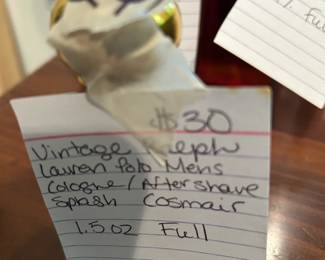 $30
Vintage Ralph
Lauren Polo Mens
Cologne/Aftershave
Splash Cosmair
1.5 oz Full
Full